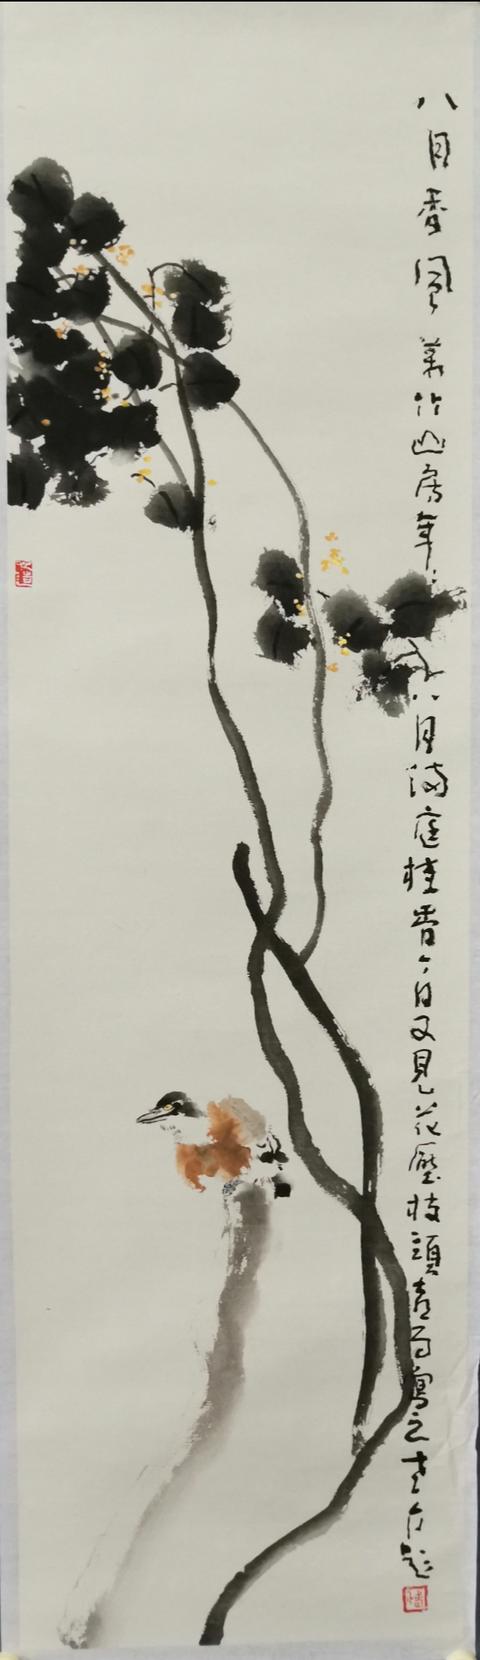 八月香風 萬竹山房年年八月滿庭桂香今日又見花壓枝頭喜而寫之老存題